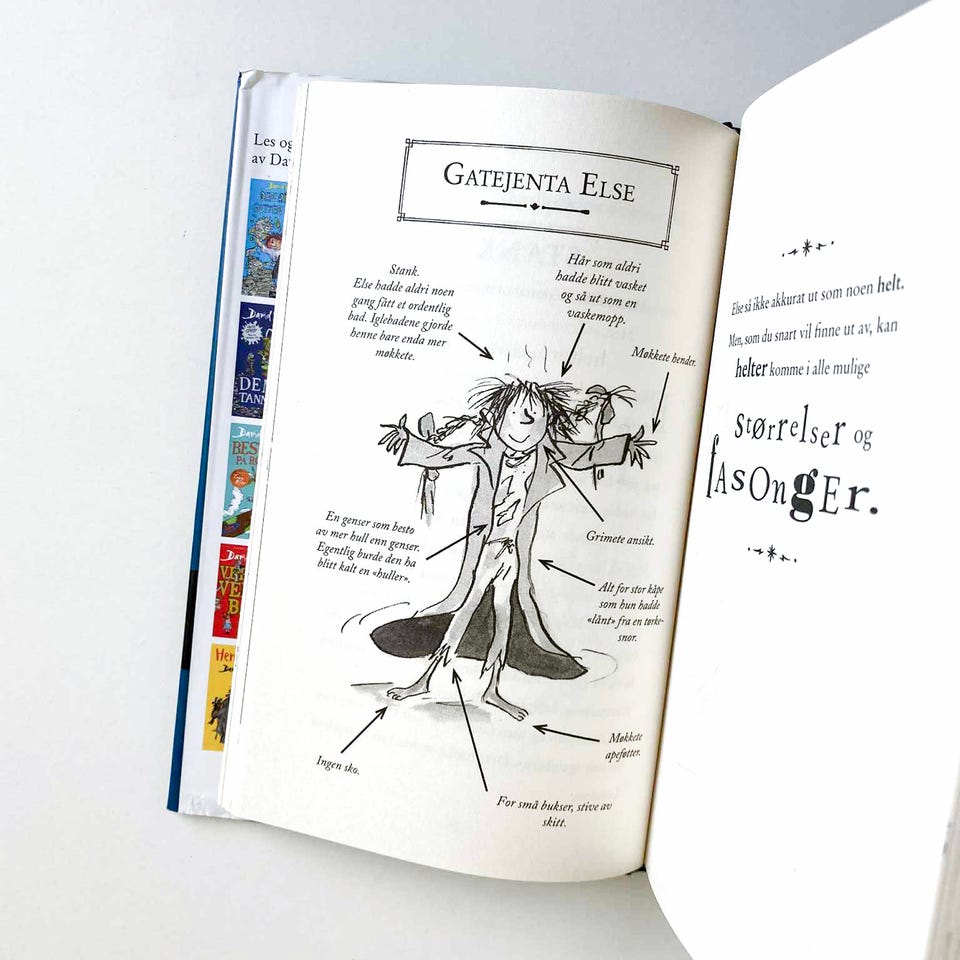 Les og
av Da
GATEJENTA ELSE
Stank.
Else hadde aldri noen
gang fått et ordentlig
bad. Iglebadene gjorde
henne bare enda mer
møkkete.
Hår som aldri
hadde blitt vasket
og så ut som en
vaskemopp.
Møkkete hender.
En genser som besto
av mer hull enn genser.
Egentlig burde den ha
blitt kalt en «huller».
Grimete ansikt.
Alt for stor kåpe
som hun hadde
«lånt» fra en tørke-
snor.
Ingen sko.
Møkkete
apeføtter.
For små bukser, stive av
skitt.
Else så ikke akkurat ut som noen helt.
Men, som du snart vil finne ut av, kan
helter komme i alle mulige
størrelser og
fAsOngEr.